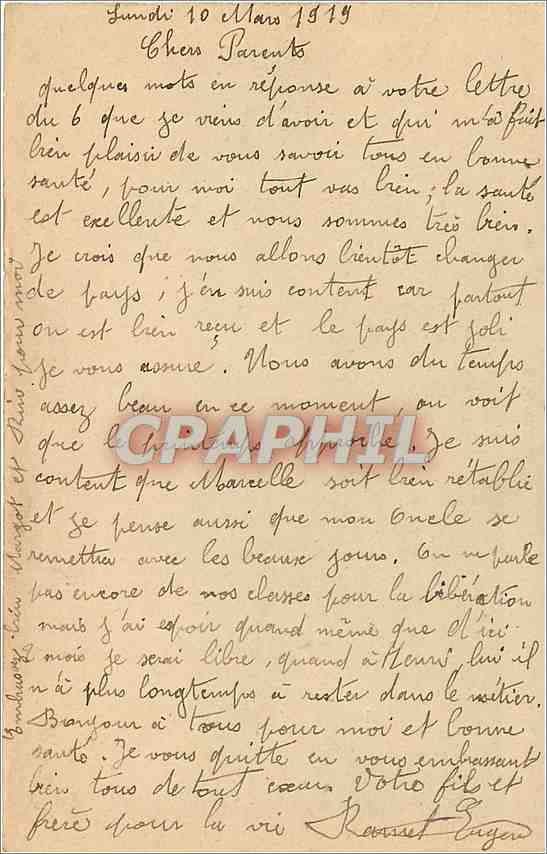 Lundi 10 Mars 1919
Chers Parents
quelques mots en réponse à votre lettre
du 6 que je viens d'avoir et qui m'a fait
bien plaisir de vous savoir tous en bonne
santé, pour moi tout vas bien ; la santé
est exellente et nous sommes très bien.
Je crois que nous allons bientôt changer
de pays ; j'en suis content car partout
on est bien reçu et le pays est joli
je vous assure. Nous avons du temps
assez beau en ce moment, on voit
que le printemps approche. Je suis
content que Marcelle soit bien rétablie
et je pense aussi que mon Oncle se
remettra avec les beaux jours. On ne parle
pas encore de nos classes pour la libération
mais j'ai espoir quand même que d'ici
2 mois je serai libre, quand à Henri, lui il
n'à plus longtemps à rester dans le métier.
Bonjour à tous pour moi et bonne
santé. Je vous quitte en vous embrassant
bien tous de tout cœur. Votre fils et
frère pour la vie Eugene
Embrassez bien Margot et pour moi
CPAPHIL